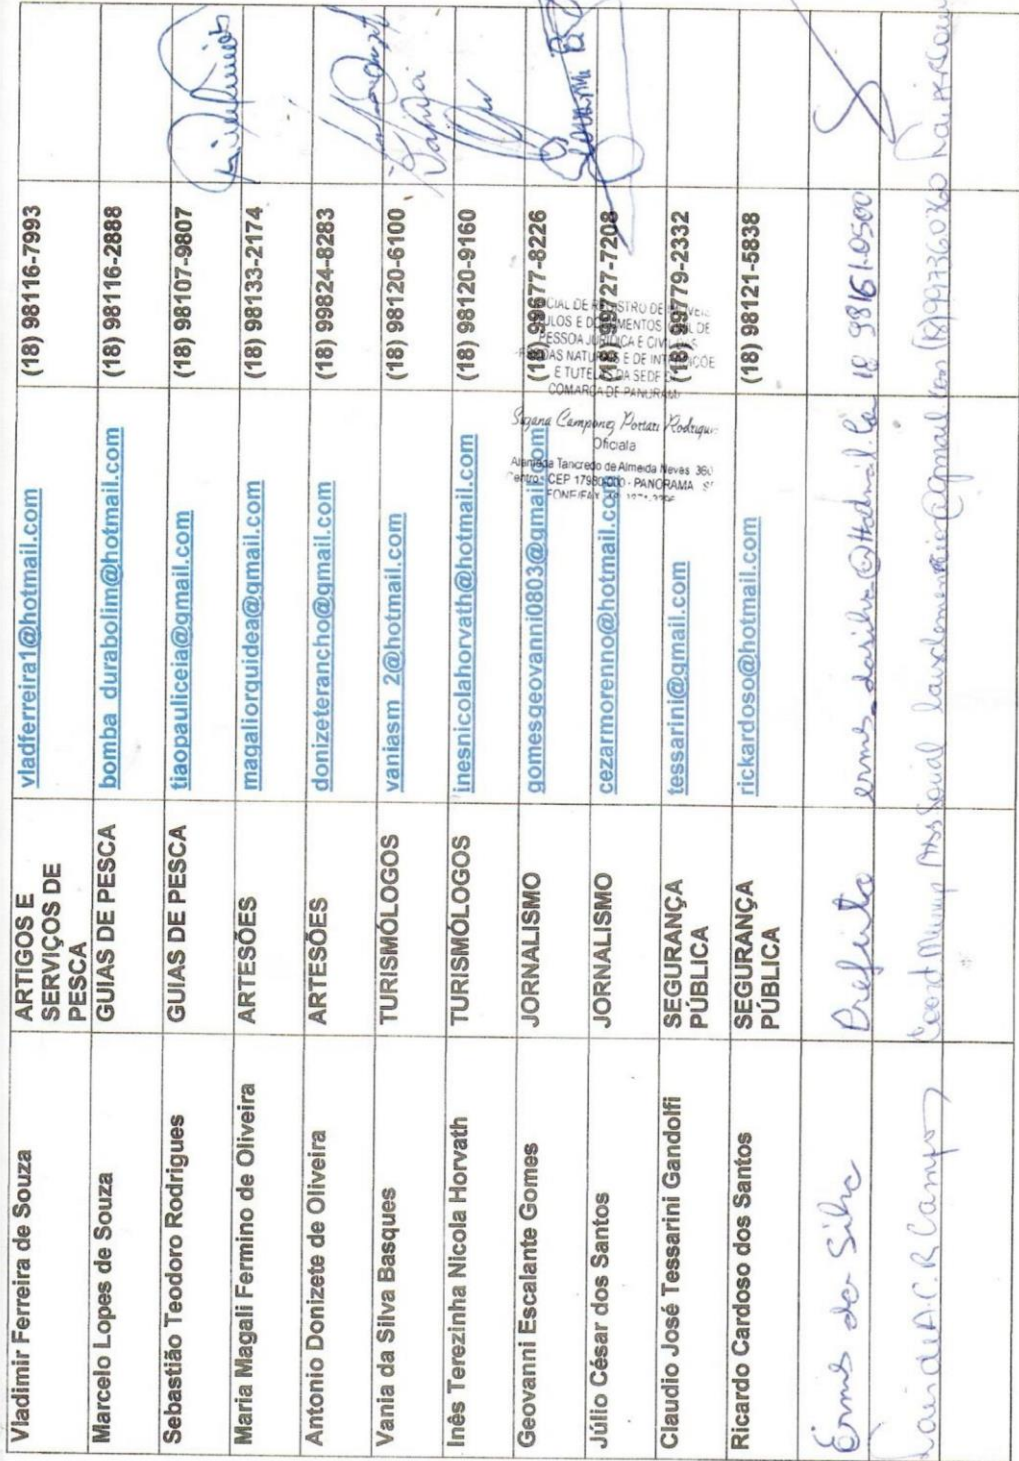 Vladimir Ferreira de Souza
ARTIGOS E
SERVIÇOS DE
PESCA
vladferreira1@hotmail.com
(18) 98116-7993
Marcelo Lopes de Souza
GUIAS DE PESCA
bomba_durabolim@hotmail.com
(18) 98116-2888
Sebastião Teodoro Rodrigues
GUIAS DE PESCA
tiaopauliceia@gmail.com
(18) 98107-9807
Maria Magali Fermino de Oliveira
ARTESÕES
magaliorquidea@gmail.com
(18) 98133-2174
Antonio Donizete de Oliveira
ARTESÕES
donizeterancho@gmail.com
(18) 99824-8283
Vania da Silva Basques
TURISMÓLOGOS
vaniasm_2@hotmail.com
(18) 98120-6100
Vania
Inês Terezinha Nicola Horvath
TURISMÓLOGOS
inesnicolahorvath@hotmail.com
(18) 98120-9160
Geovanni Escalante Gomes
JORNALISMO
gomesgeovanni0803@gmail.com
(18) 99977-8226
Júlio César dos Santos
JORNALISMO
cezarmorenno@hotmail.com
(18) 99727-7208
Claudio José Tessarini Gandolfi
SEGURANÇA
PÚBLICA
tessarini@gmail.com
(18) 99779-2332
Ricardo Cardoso dos Santos
SEGURANÇA
PÚBLICA
rickardoso@hotmail.com
(18) 98121-5838
Ermes da Silva
Prefeito
18 98161-0500
Campos
Social
PESSOA JURÍDICA E CIVIL DAS
E TUTELAS DA SEDE
COMARCA DE PANORAMA
Oficiala
Alameda Tancredo de Almeida Neves 360
Centro - CEP 17980-000 - PANORAMA